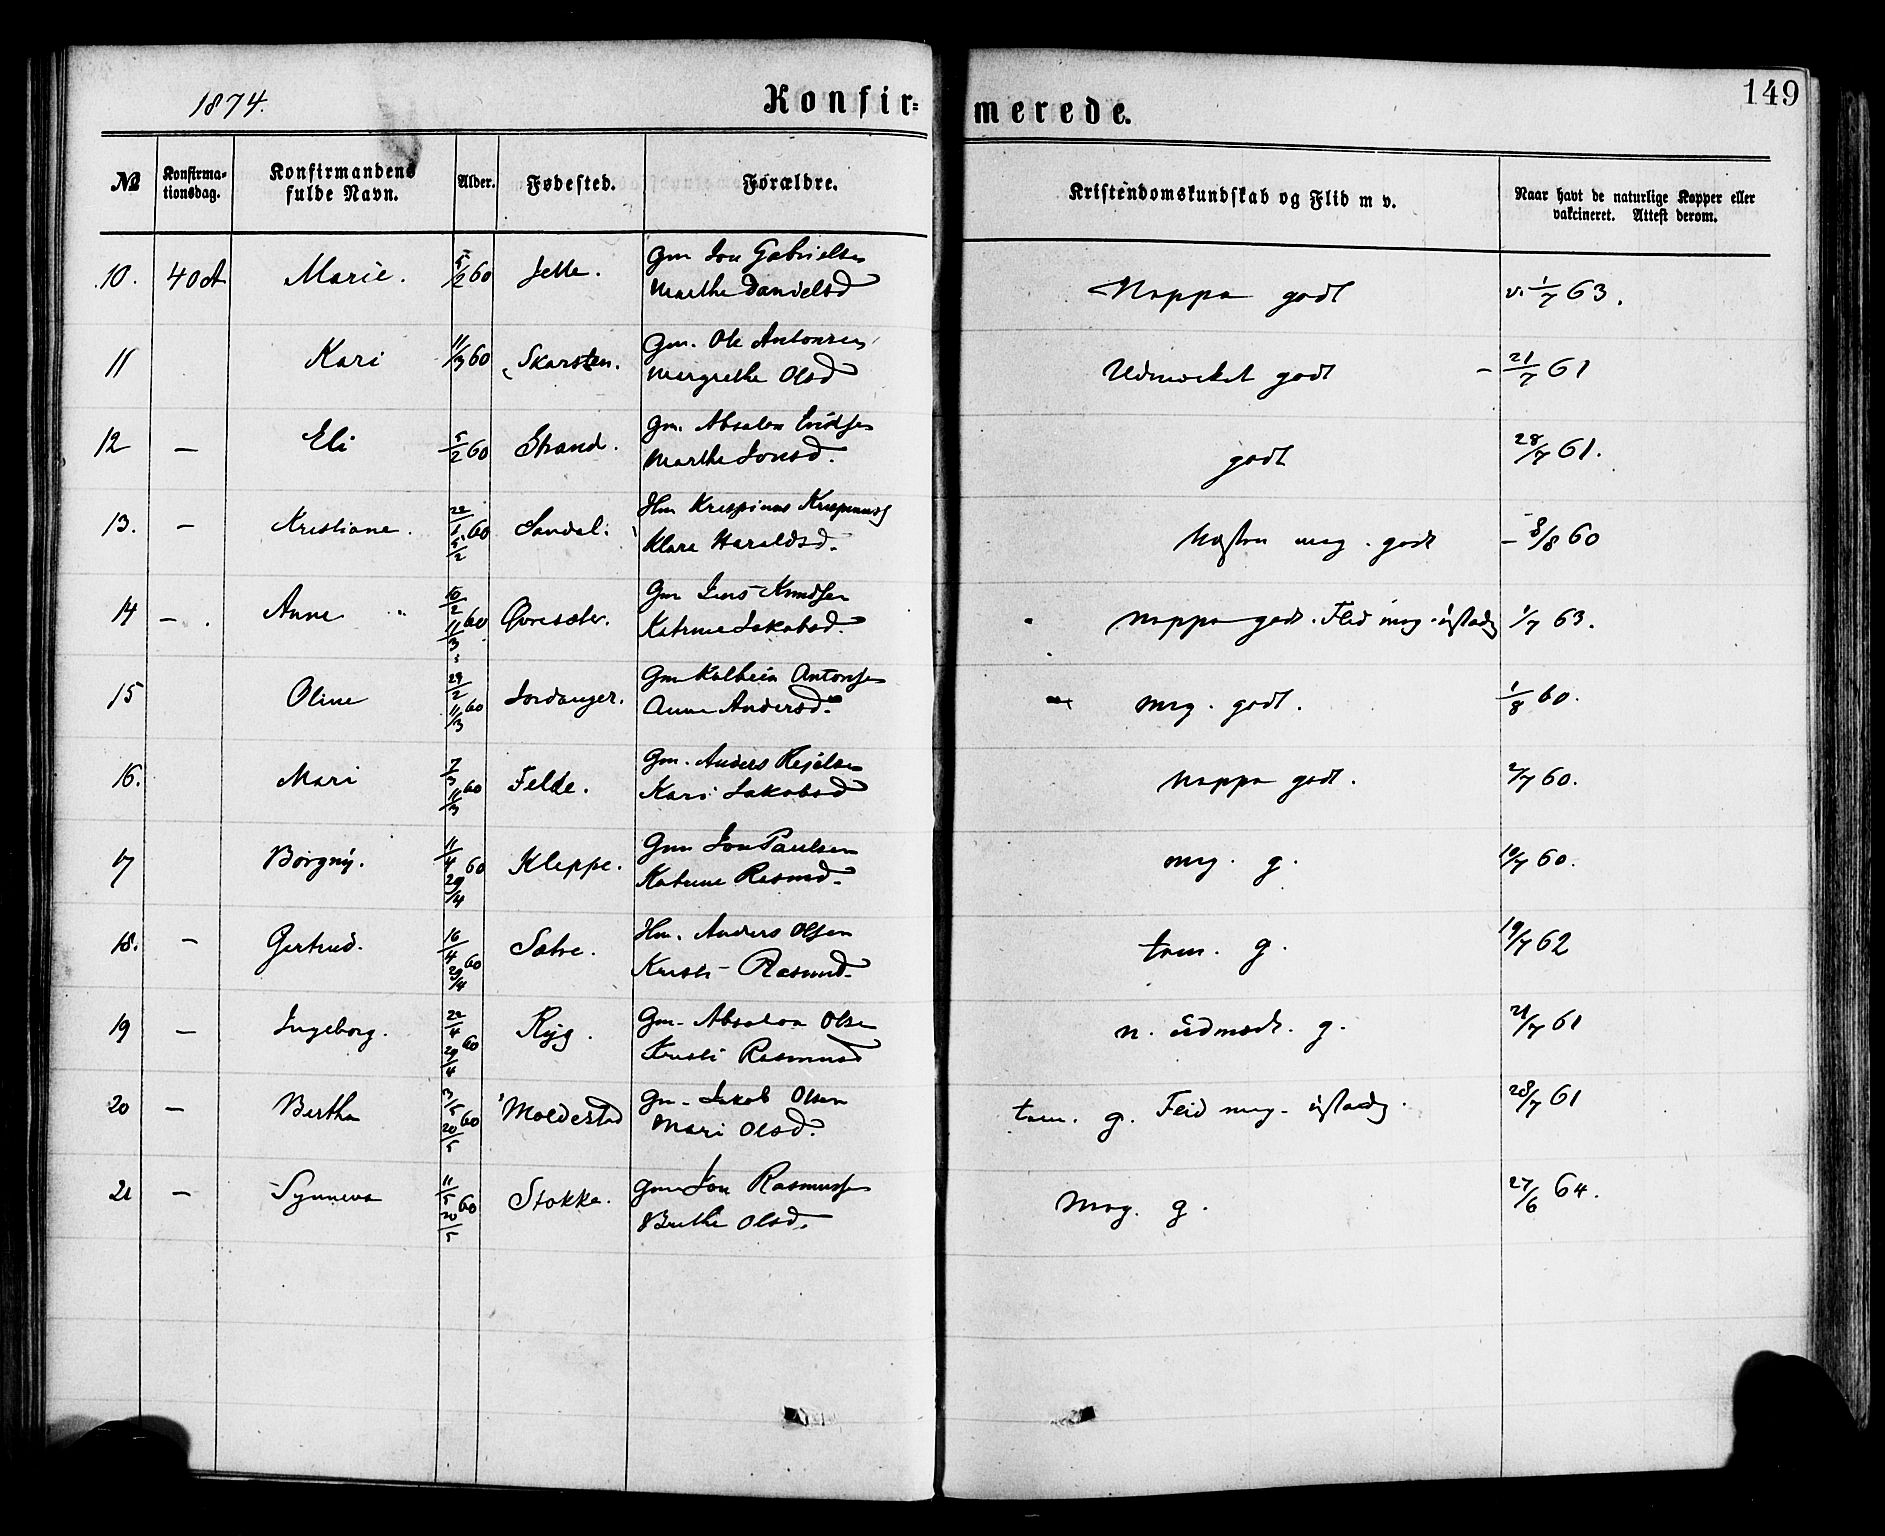 1874.
Konfir=
merede.
149
№
Konfirma-
tionsdag.
Konfirmandens
fulde Navn.
Alder.
Fødested.
Forældre.
Kristendomskundskab og Flid m v.
Naar havt de naturlige Kopper eller
vakcineret. Attest derom.
10. 4 Oct Marie. 5/2 60 Gm Jon Gabrielsen
Marthe Danielsd
Noppe godt v. 1/7 63.
11 Kari 11/3 60 Skarsten. Gm. Ole Antonsen
Margrethe Olsd
Udmærket godt - 21/7 61
12 — Eli 5/2 60 Strand. Gm. Absalon
Marthe Jonsd.
godt 28/7 61.
13. — Kristiane. 22/1 60 5/2 Sandal. Hm Krispinus Krispinuss
Klara Haraldsd.
Næsten meg. godt — 8/8 60
14 — . Anne 10/2 60 11/3 Øvresæter. Gm Jens Knudsen
Katrine Jakobsd.
Noppe godt. Flid meg. ustadig 1/7 63.
15 Oline 29/2 60 11/3 Jordanger. Gm Kolbein Antonsen
Anne Andersd.
meg. godt. 1/8 60.
16. Mari 7/3 60 11/3 Felde. Gm. Anders
Kari Jakobsd
Noppe godt. 2/7 60.
17 Borgny. 11/4 60 29/4 Kleppe. Gm Jon Paulsen
Katrine Rasmd.
meg. g. 10/7 60.
18. — Gertrud. 16/4 60 29/4 Sætre. Hm. Anders Olsen
Kristi Rasmd.
tem. g. 19/7 62
19 — Ingeborg. 22/4 60 29/4 Ryg. Gm. Absalon Olsen
Kristi Rasmusd
n. udmærk. g. 21/7 61
20 — Berthe 3/5 60 20/5 Moldestad Gm. Jakob Olsen
Mari Olsd.
tem. g. Flid meg. ustadig. 28/7 61
21 — Synneva 11/5 60 20/5 Stokke. Gm Jon Rasmussen
Berthe Olsd.
Meg. g. 27/6 64.